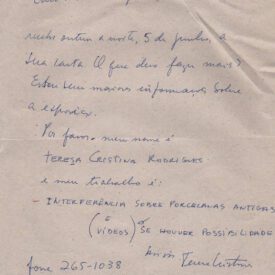 recebi ontem a noite, 5 de junho, a
sua carta. O que devo fazer mais?
Estou sem maiores informações sobre
a exposição.
Por favor meu nome é
TERESA CRISTINA RODRIGUES
e meu trabalho é:
- INTERFERÊNCIA SOBRE PORCELANAS ANTIGAS
(E VÍDEOS) SE HOUVER POSSIBILIDADE
Teresa Cristina
fone 265-1038